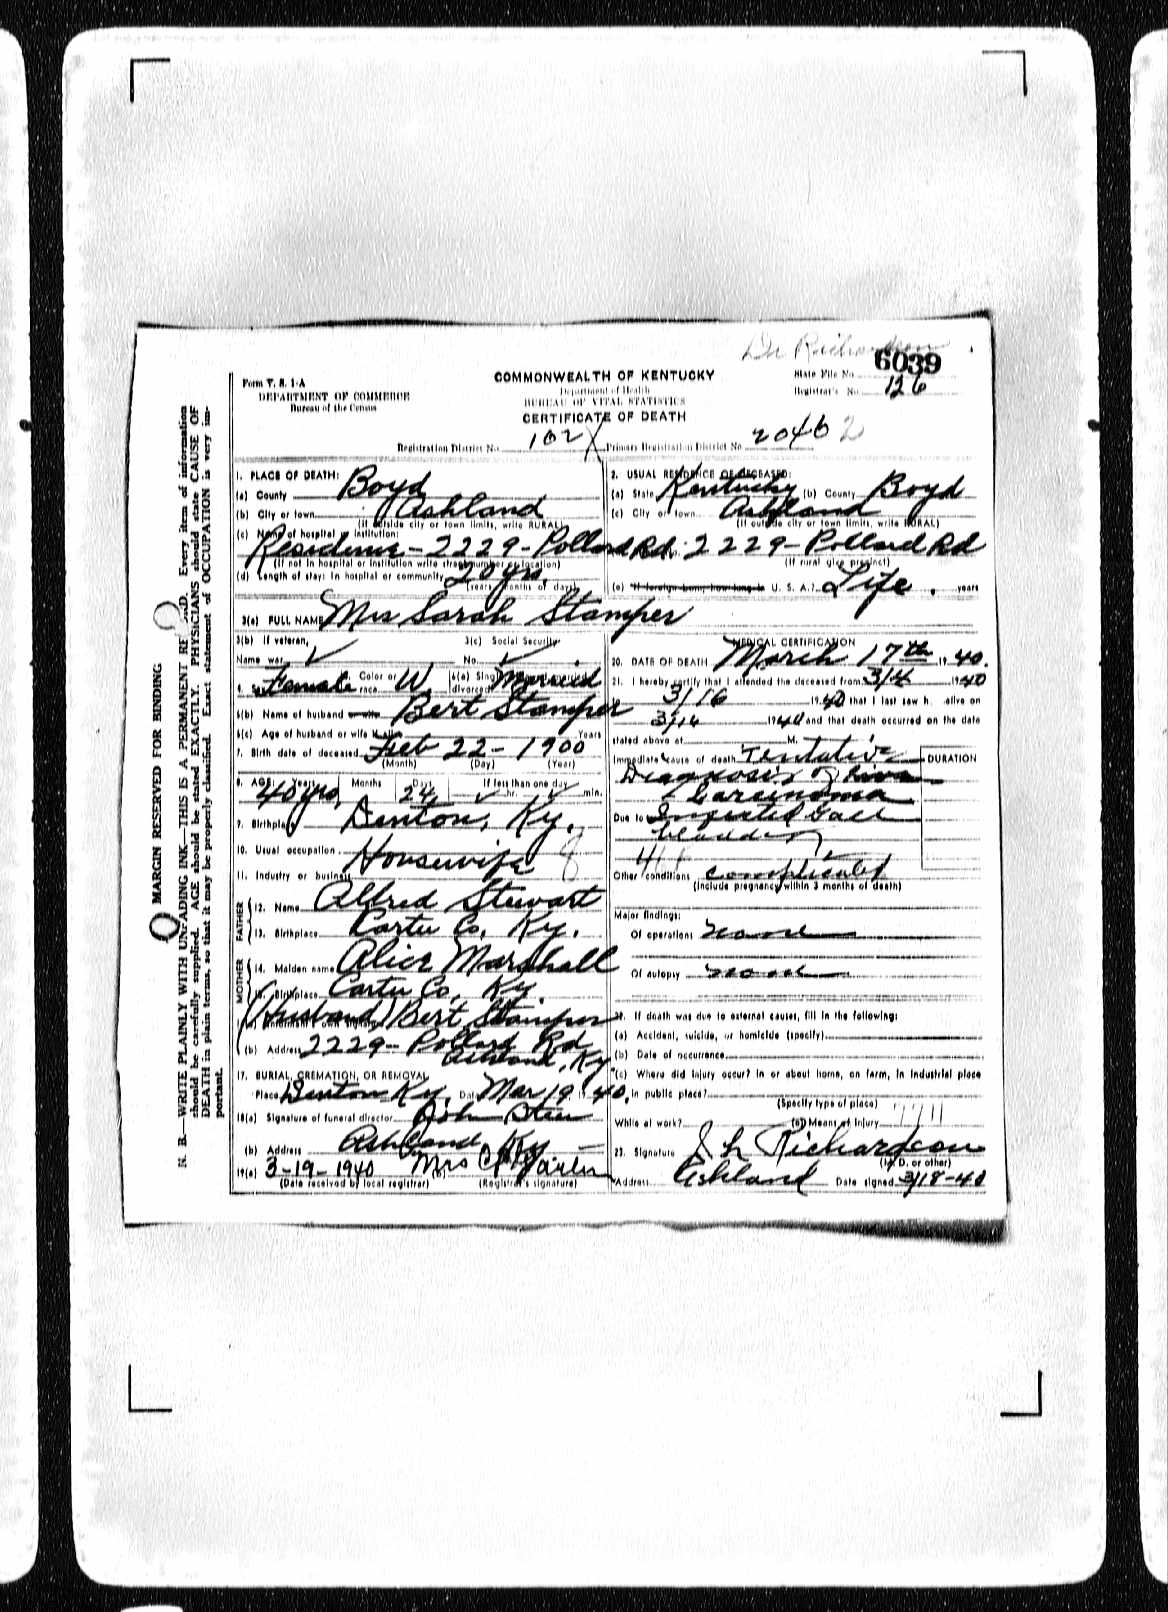 Dr Richardson
6039
Form V. S. 1-A
DEPARTMENT OF COMMERCE
Bureau of the Census
COMMONWEALTH OF KENTUCKY
Department of Health
BUREAU OF VITAL STATISTICS
CERTIFICATE OF DEATH
State File No.
Registrar's No. 126
Registration District No. 102 X Primary Registration District No. 20462
MARGIN RESERVED FOR BINDING
N. B.—WRITE PLAINLY WITH UNFADING INK—THIS IS A PERMANENT Every item of information
should be carefully supplied. AGE should be stated EXACTLY. PHYSICIANS should state CAUSE OF
DEATH in plain terms, so that it may be properly classified. Exact statement of OCCUPATION is very im-
portant.
1. PLACE OF DEATH:
(a) County Boyd
(b) City or town Ashland
(If outside city or town limits, write RURAL)
(c) Name of hospital or institution:
Residence - 2229 - Pollard Rd.
(If not in hospital or institution write street number or location)
(d) Length of stay: In hospital or community 20 yrs.
(years months or days)
2. USUAL RESIDENCE OF DECEASED:
(a) State Kentucky (b) County Boyd
(c) City or town Ashland
(If outside city or town limits, write RURAL)
2229 - Pollard Rd
(If rural give precinct)
(e) If foreign born, how long in U. S. A.? Life. years
3(a) FULL NAME Mrs Sarah Stamper
3(b) If veteran, 3(c) Social Security
Name war No.
4. Sex Female Color or race W 6(a) Married divorced
6(b) Name of husband or wife Bert Stamper
6(c) Age of husband or wife if alive Years
7. Birth date of deceased Feb 22 - 1900
(Month) (Day) (Year)
8. AGE: Years Months Days If less than one day
40 yrs. 24 hr. min.
9. Birthplace Denton, Ky.
10. Usual occupation Housewife 8
11. Industry or business
FATHER
12. Name Alfred Stewart
13. Birthplace Carter Co. Ky.
MOTHER
14. Maiden name Alice Marshall
15. Birthplace Carter Co. Ky
(Husband) Bert Stamper
(b) Address 2229 - Pollard Rd
Ashland, Ky
17. BURIAL, CREMATION, OR REMOVAL
Place Denton Ky. Date Mar 19 1940
18(a) Signature of funeral director John Steen
(b) Address Ashland, Ky
19(a) 3-19-1940 (b) Mrs
(Date received by local registrar) (Registrar's signature)
MEDICAL CERTIFICATION
20. DATE OF DEATH March 17th 1940.
21. I hereby certify that I attended the deceased from 3/4 1940
3/16 1940 that I last saw h alive on
3/16 1940 and that death occurred on the date
stated above at M.
Immediate cause of death Tentative
Diagnosis of Liver
Carcinoma
DURATION
Due to Infected Gall
bladder
Other conditions complicated
(Include pregnancy within 3 months of death)
Major findings:
Of operations none
Of autopsy none
22. If death was due to external causes, fill in the following:
(a) Accident, suicide, or homicide (specify)
(b) Date of occurrence
(c) Where did injury occur? In or about home, on farm, in industrial place
in public place?
(Specify type of place)
While at work? (e) Means of injury
23. Signature J. L. Richardson
(M. D. or other)
Address Ashland Date signed 3/18-40